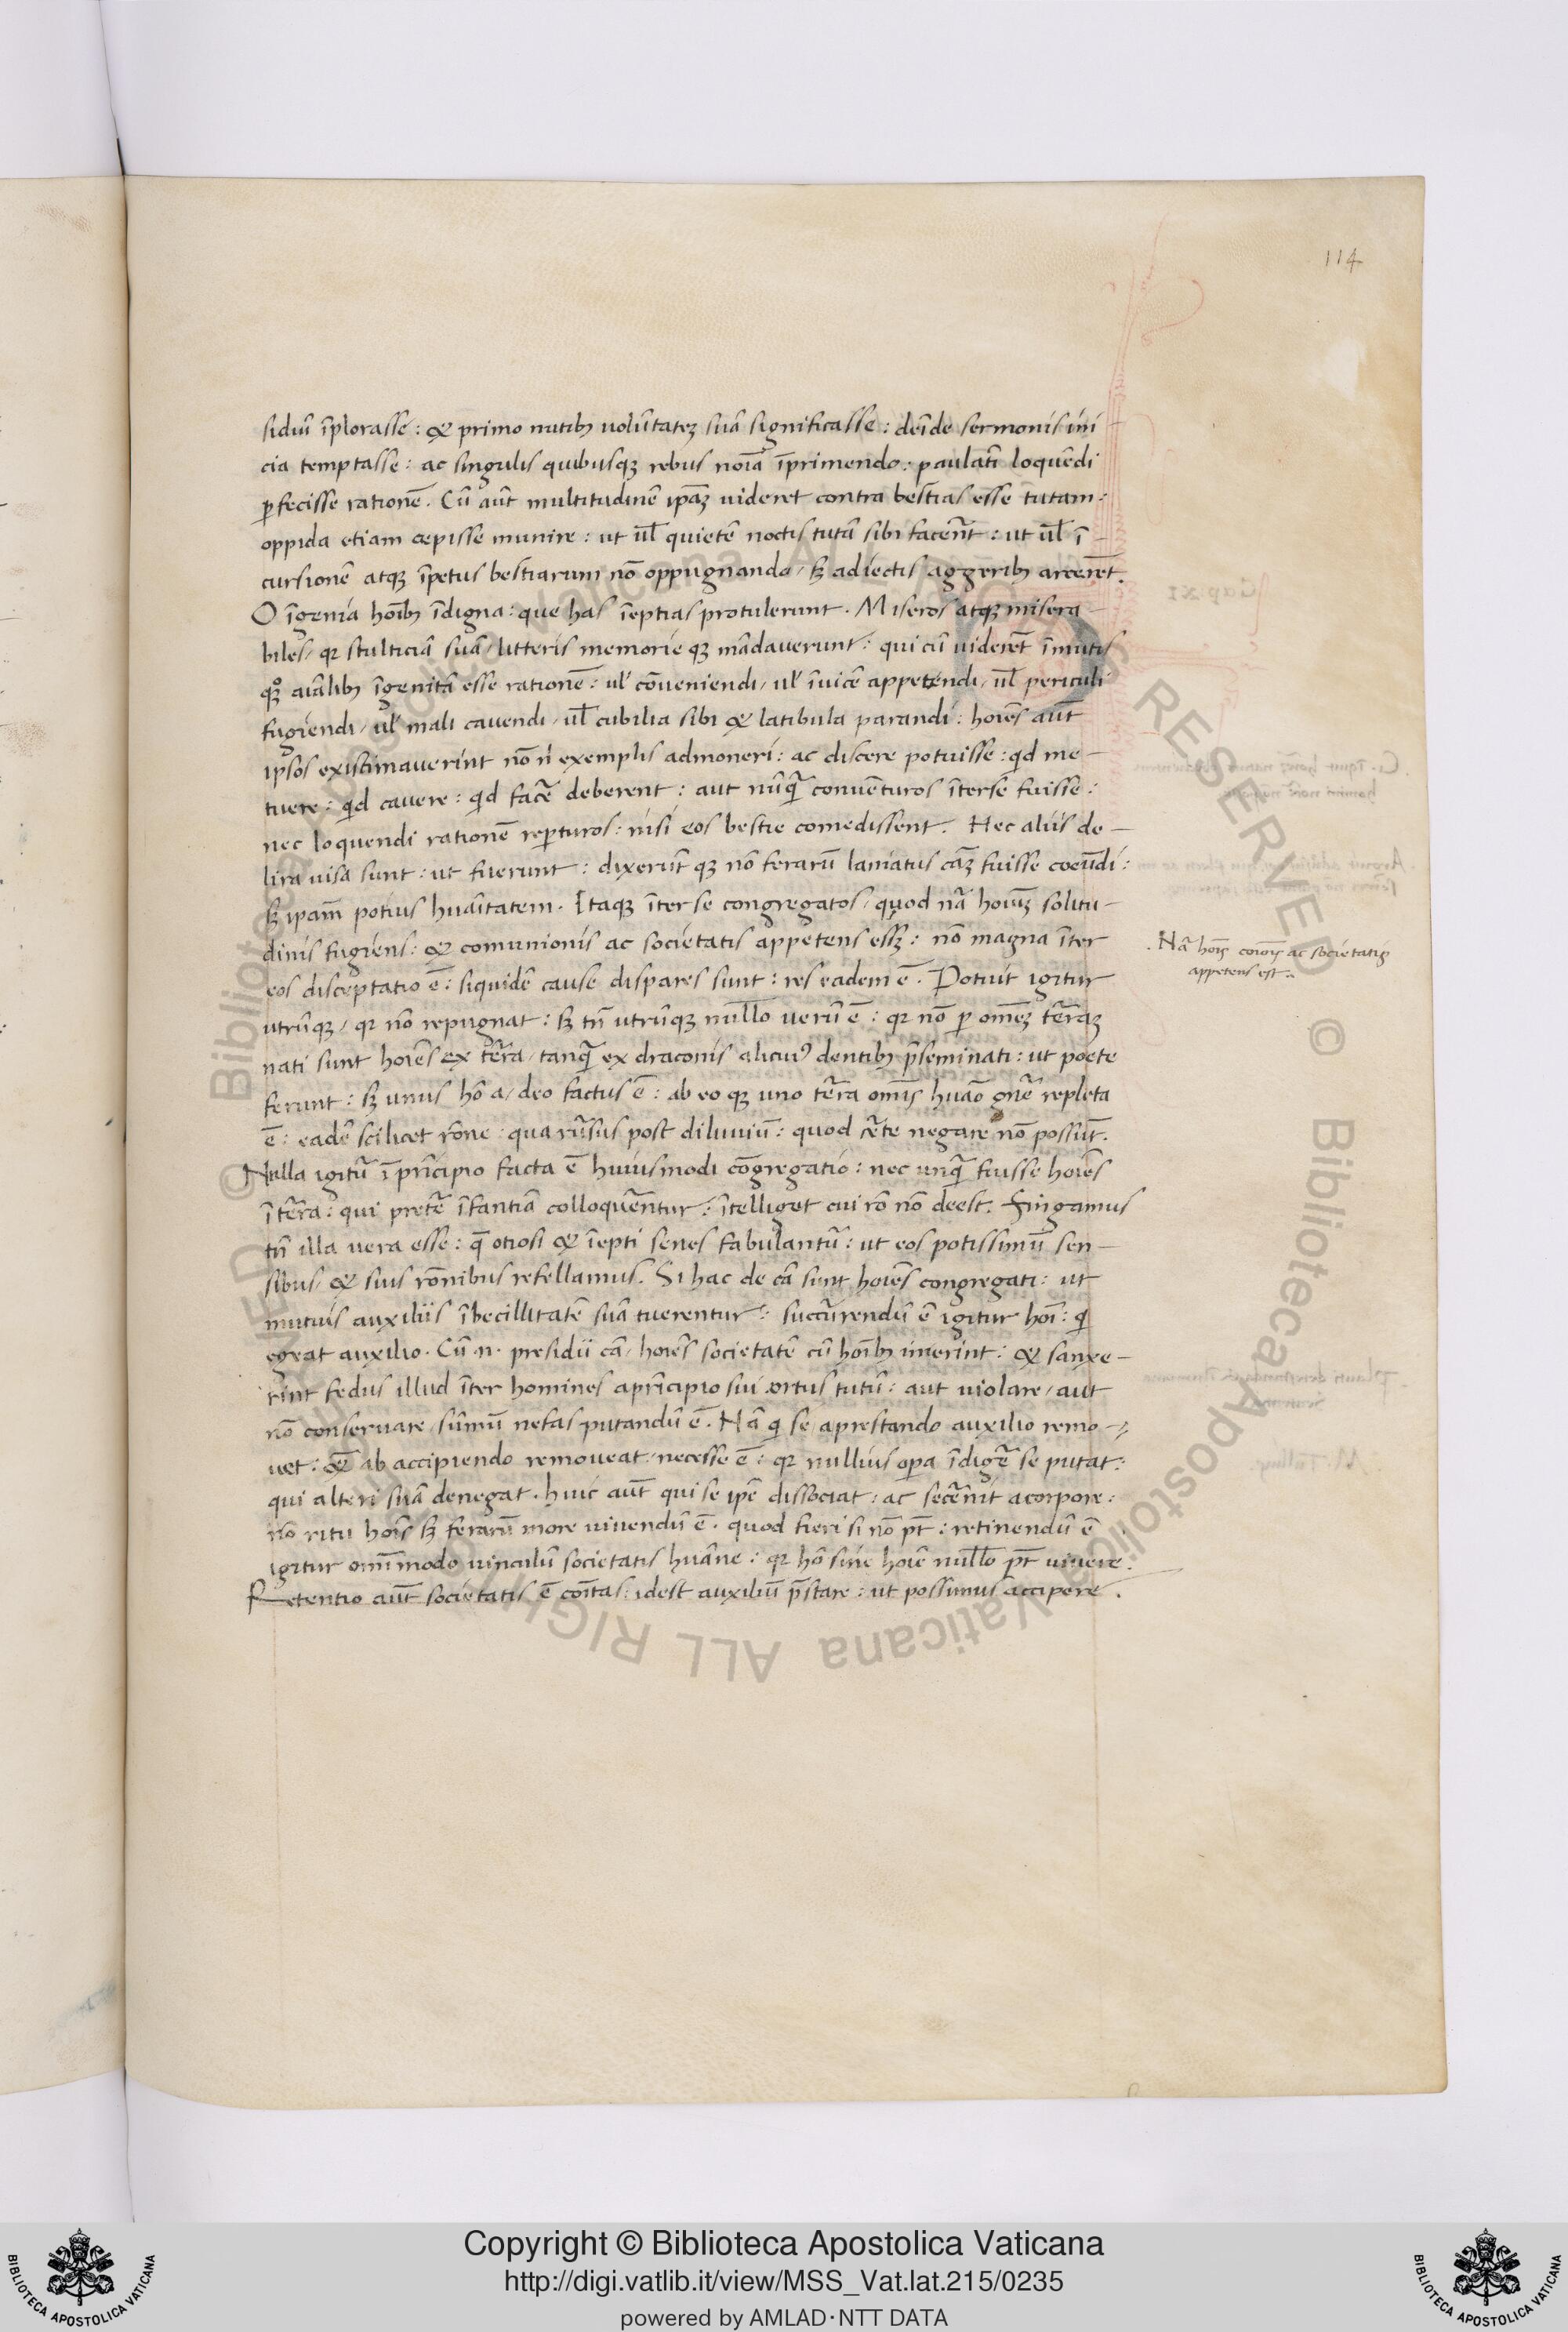 114
sidiũ ĩplorasse: & primo nutibȝ volũtatẽ suã significasse: deĩde sermonis ini
cia temptasse: ac singulis quibusqȝ rebus noĩa ĩprimendo: paulatĩ loquẽdi
ꝑfecisse rationẽ. Cũ aũt multitudinẽ ipãȝ uideret contra bestias esse tutam:
oppida etiam cepisse munire: ut ul̃ quietẽ noctis tutã sibi facer̃et: ut ul̃ ĩ
cursionẽ atqȝ ĩpetus bestiarum nõ oppugnando / sȝ adiectis aggeribȝ arcer̃et.
O ĩgenia hoĩbȝ ĩdigna: que has ĩeptias protulerunt. Miseros atqȝ misera–
biles / qꝛ stulticiã suã / litteris memorie qȝ mãdaverunt: qui cũ uider̃et ĩ mutis
qȝ aĩalibȝ ĩgenitã esse rationẽ: ul̃ cõveniendi / ul̃ ĩuicẽ appetendi / ul̃ periculi
fugiendi / ul̃ mali cavendi / ul̃ cubilia sibi & latibula parandi: hoĩes aũt
ipsos existimaverint nõ nĩ exemplis admoneri: ac discere potuisse: qd me–
tuere: qd cavere: qd facẽ deberent: aut nũq̃ conventuros ĩterse fuisse:
nec loquendi rationẽ reperturos: nisi eos bestie comedissent. Hec aliis de–
lira visa sunt: ut fuerunt: dixerũt qȝ nõ ferarũ laniatus cãȝ fuisse coeũdi:
sȝ ipam̃ potius huãitatem. Itaqȝ ĩter se congregatos / quod nã hoĩuȝ solitu–
dinis fugiens: & comunionis ac societatis appetens essȝ: nõ magna ĩter
eos disceptatio ẽ: siquidẽ cause dispares sunt: res eadem ẽ. Potuit igitur
utrũqȝ / qꝛ nõ repugnat: sȝ tñ utrũqȝ nullo verũ ẽ: qꝛ nõ ꝑ omẽȝ ter̃aȝ
nati sunt hoĩes ex ter̃a / tanq̃ ex draconis alicui⁹ dentibȝ p̃seminati: ut poete
ferunt: sȝ unus hõ a / deo factus ẽ: ab eo qȝ uno ter̃a omĩs huão gñe repleta
ẽ: eadẽ scilicet rõne: qua rũsus post diluviũ: quod cẽte negare nõ possũt.
Nulla igitũ ĩ prĩcipio facta ẽ huiusmodi cõgregatio: nec unq̃ fuisse hoĩes
ĩ ter̃a: qui pretẽ ĩfantiã colloquẽrentur: ĩtelliget cui rõ nõ deest. Fingamus
tñ illa vera esse: q̃ otiosi & ĩepti senes fabulantũ: ut eos potissimũ sen–
sibus / & suis rõnibus refellamus. Si hac de cã sunt hoĩes congregati: ut
mutuis auxiliis ĩbecillitatẽ suã tuerentur: succũrendũ ẽ igitur hoĩ: qi
egeat auxilio. Cũ .n. presidii cã / hoĩes societatẽ cũ hoĩbȝ inierint: & sanxe–
rint fedus illud ĩter homines aprĩcipio sui ortus tutũ: aut violare / aut
nõ conservare / sũmũ nefas putandũ ẽ. Nã qi se aprestando auxilio remo–
vet: & ab accipiendo removeat / necesse ẽ: qꝛ nullius oꝑa ĩdigẽ se putat:
qui alteri suã denegat. huic aũt qui se ipẽ dissociat: ac secẽnit acorpore:
nõ ritu hoĩs sȝ ferarũ more vivendũ ẽ. quod fieri si nõ pt̃: retinendũ ẽ
igitur omĩmodo vinculũ societatis huãne: qꝛ hõ sine hoĩe nullo pt̃ vivere.
Retentio aũt societatis ẽ coĩtas: idest auxiliũ p̃stare: ut possimus accipere.
. Nã hoĩs coĩõis ac societatis
appetens est.
Copyright © Biblioteca Apostolica Vaticana
http://digi.vatlib.it/view/MSS_Vat.lat.215/0235
powered by AMLAD·NTT DATA
BIBLIOTECA APOSTOLICA VATICANA
BIBLIOTECA APOSTOLICA VATICANA
© Biblioteca Apostolica Vaticana ALL RIGHTS RESERVED © Biblioteca Apostolica Vaticana ALL RIGHTS RESERVED